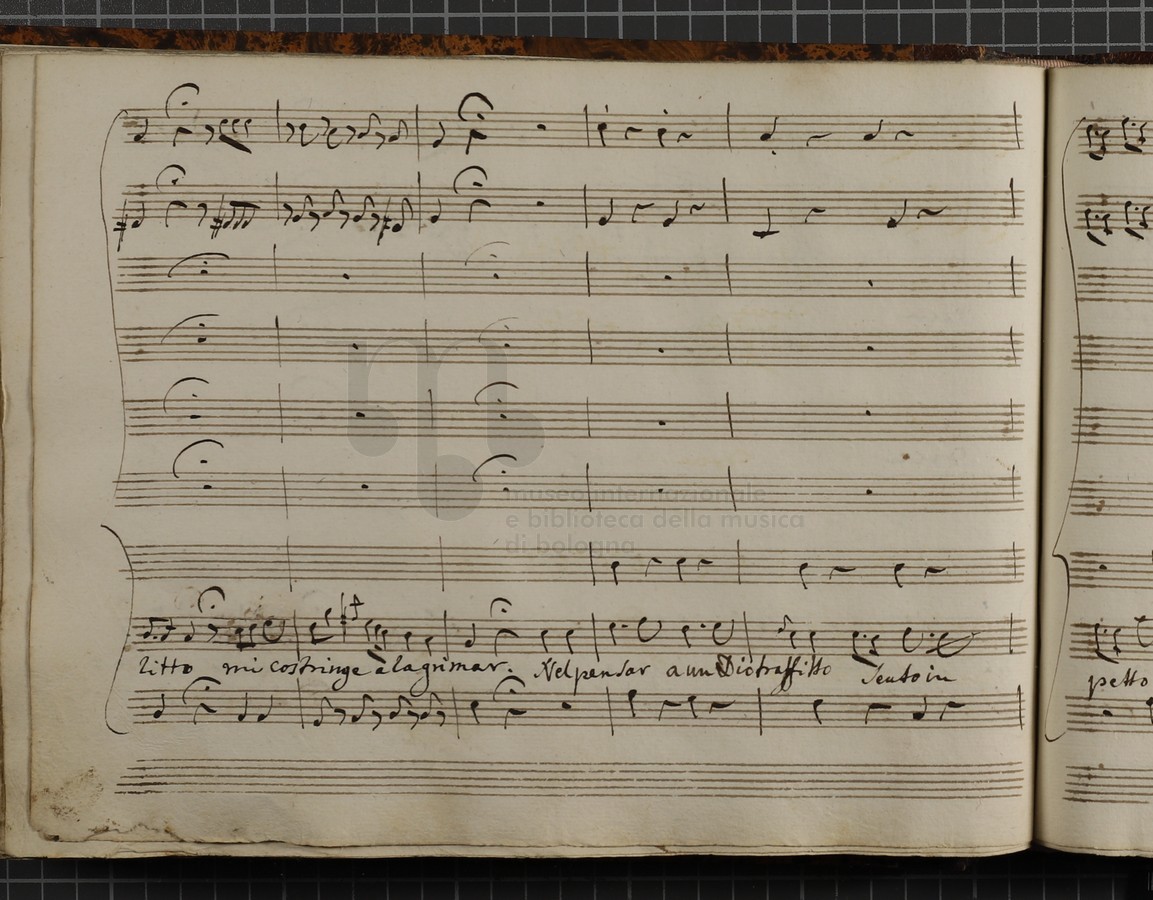 museo internazionale
e biblioteca della musica
di bologna
litto mi costringe à lagrimar. Nel pensar a un Dio traffitto Sento in
petto